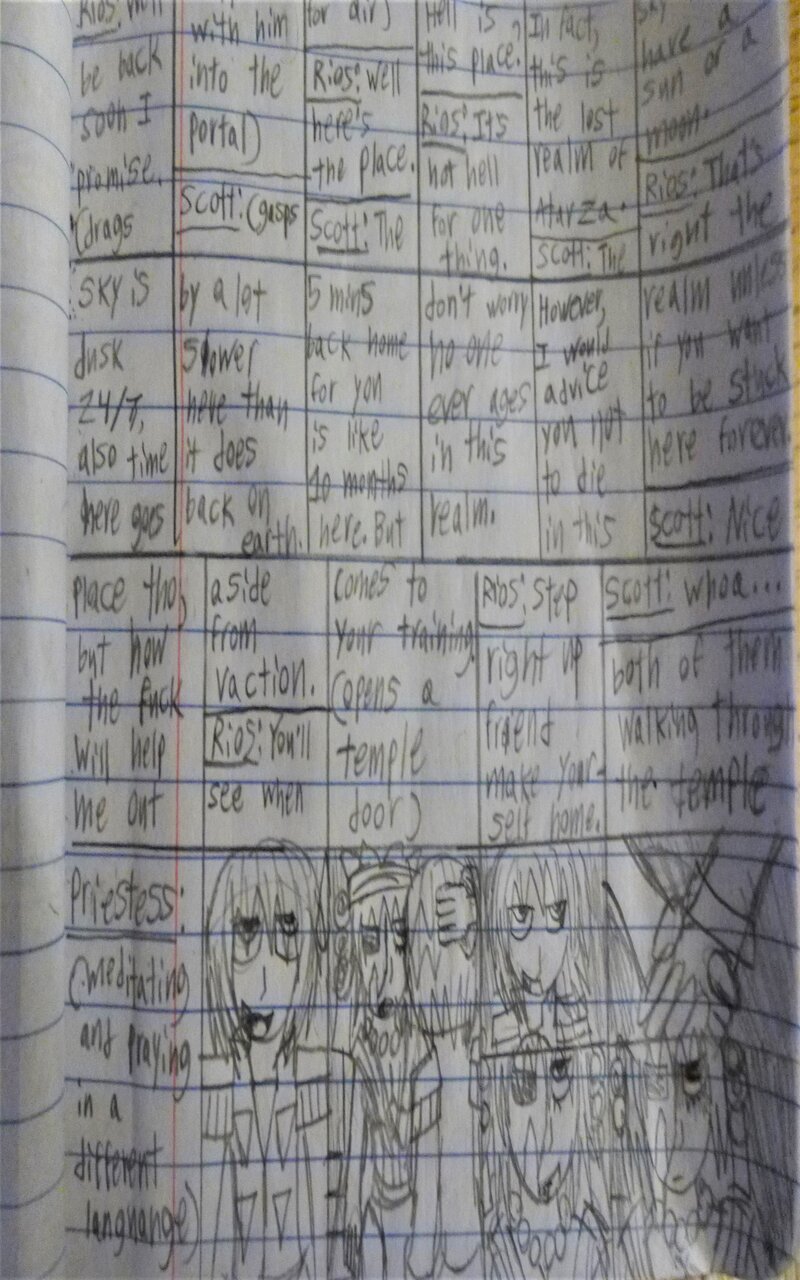 Rios: Well
be back
soon I
promise.
(drags
with him
into the
portal)
Scott: (gasps
for air)
Rios: Well
here's
the place.
Scott: The
Hell is
this place.
Rios: Its
not hell
for one
thing.
In fact,
this is
the lost
realm of
Atarza.
Scott: The
have a
sun or a
moon.
Rios: That's
right the
sky is
dusk
24/7,
also time
here goes
by a lot
slower
here than
it does
back on
earth.
5 mins
back home
for you
is like
10 months
here. But
don't worry
no one
ever ages
in this
realm.
However,
I would
advice
you not
to die
in this
realm unless
if you want
to be stuck
here forever.
Scott: Nice
place tho,
but how
the fuck
will help
me out
aside
from
vaction.
Rios: You'll
see when
comes to
your training.
(opens a
temple
door)
Rios: Step
right up
friend
make your-
self home.
Scott: Whoa...
both of them
walking through
the temple
Priestess:
(meditating
and praying
in a
different
langnange)